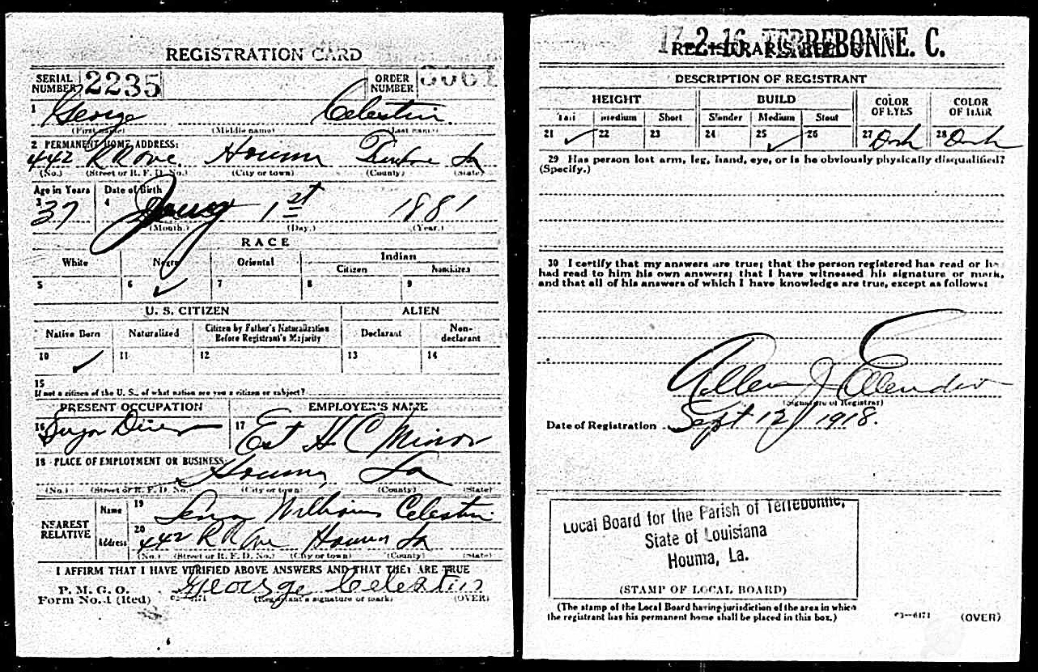 REGISTRATION CARD
SERIAL NUMBER 2235 ORDER NUMBER
1 George Celestin
(First name) (Middle name) (Last name)
2 PERMANENT HOME ADDRESS:
442 R R Ave Houma La
(No.) (Street or R. F. D. No.) (City or town) (County) (State)
Age in Years Date of Birth
3 37 4 1st 1881
(Month.) (Day.) (Year.)
RACE
White Negro Oriental Indian
Citizen Noncitizen
5 6 ✓ 7 8 9
U. S. CITIZEN ALIEN
Native Born Naturalized Citizen by Father's Naturalization Before Registrant's Majority Declarant Non-declarant
10 ✓ 11 12 13 14
15
If not a citizen of the U. S., of what nation are you a citizen or subject?
PRESENT OCCUPATION EMPLOYER'S NAME
16 17 Est H C Minor
18 PLACE OF EMPLOYMENT OR BUSINESS:
Houma La
(No.) (Street or R. F. D. No.) (City or town) (County) (State)
NEAREST RELATIVE Name 19 Williams Celestin
Address 20 442 R R Ave Houma La
(No.) (Street or R. F. D. No.) (City or town) (County) (State)
I AFFIRM THAT I HAVE VERIFIED ABOVE ANSWERS AND THAT THEY ARE TRUE
P. M. G. O.
Form No. 1 (Red) George Celestin
(Registrant's signature or mark) (OVER)
17 2 16 TERREBONNE. C.
REGISTRAR'S REPORT
DESCRIPTION OF REGISTRANT
HEIGHT BUILD COLOR OF EYES COLOR OF HAIR
Tall Medium Short Slender Medium Stout
21 ✓ 22 23 24 25 ✓ 26 27 Dark 28 Dark
29 Has person lost arm, leg, hand, eye, or is he obviously physically disqualified?
(Specify.)
30 I certify that my answers are true; that the person registered has read or has
had read to him his own answers; that I have witnessed his signature or mark,
and that all of his answers of which I have knowledge are true, except as follows:
Allen J Ellender
(Signature of Registrar)
Date of Registration Sept 12/1918.
Local Board for the Parish of Terrebonne,
State of Louisiana
Houma, La.
(STAMP OF LOCAL BOARD)
(The stamp of the Local Board having jurisdiction of the area in which
the registrant has his permanent home shall be placed in this box.)
03—6171 (OVER)